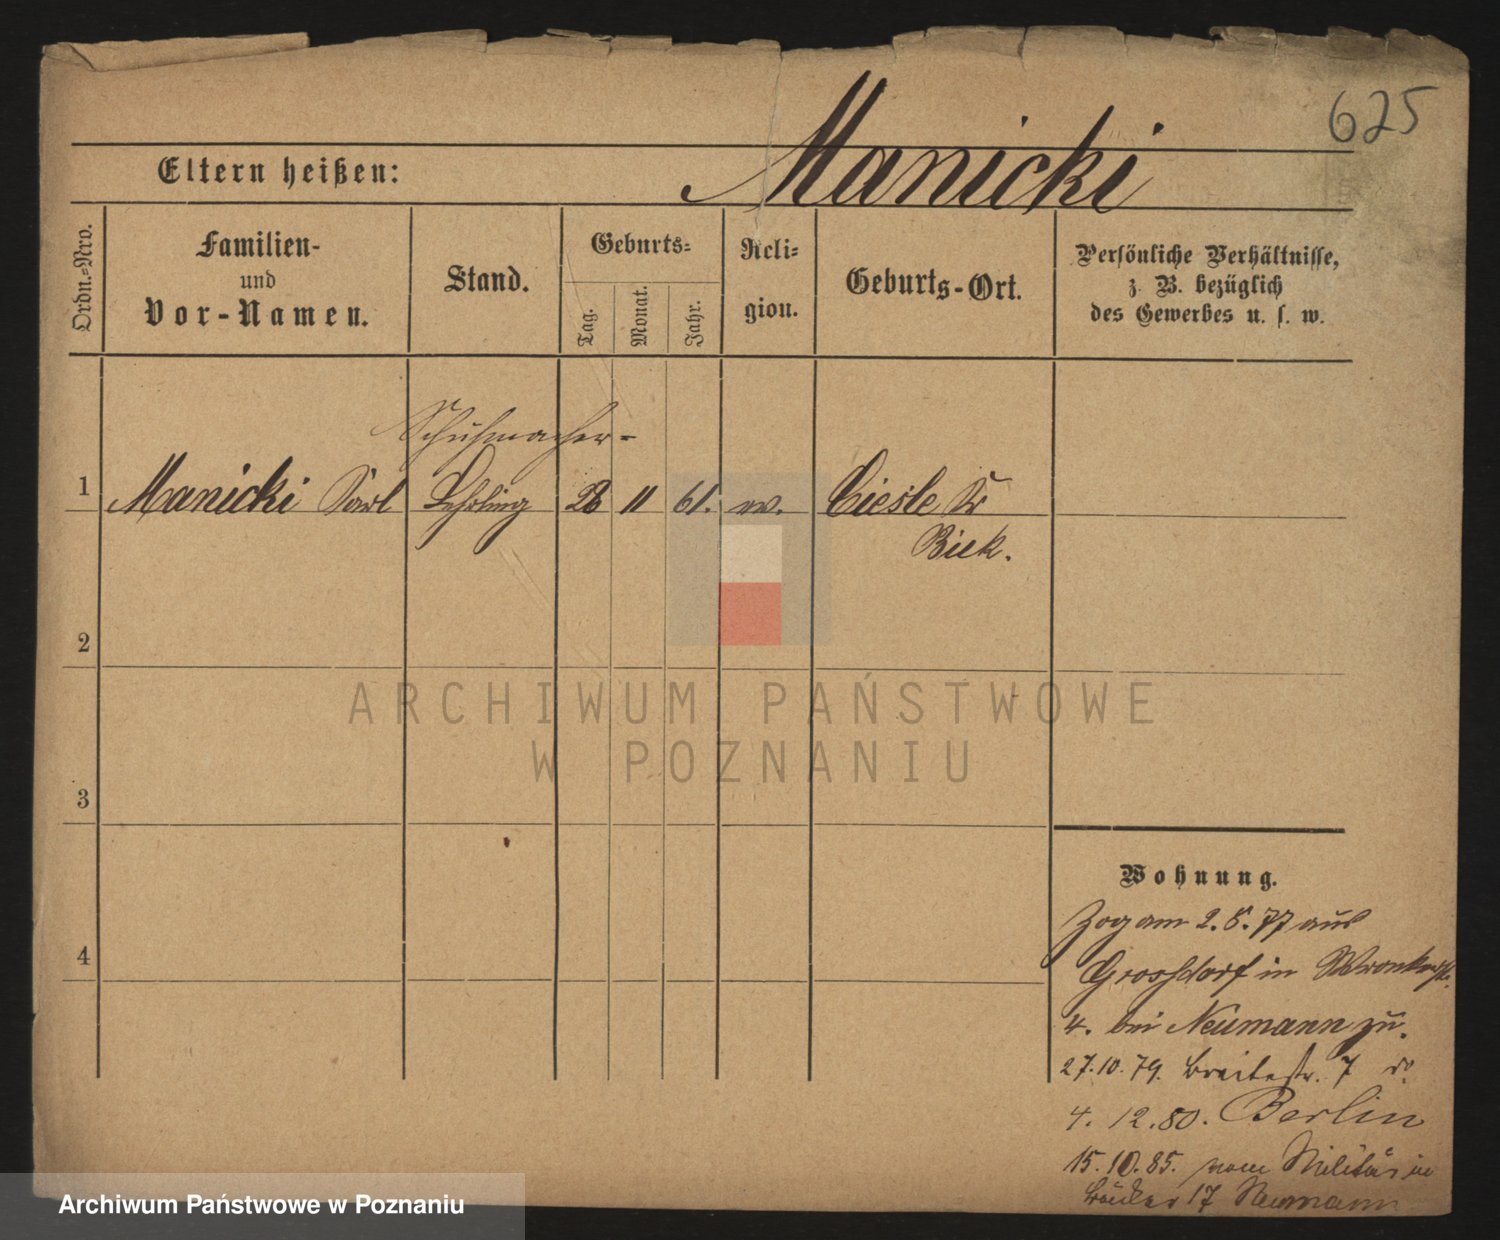 625
Manicki
Eltern heißen:
Ordn.-Nro.
Familien-
und
Vor-Namen.
Stand.
Geburts-
Tag.
Monat.
Jahr.
Reli-
gion.
Geburts-Ort.
Persönliche Verhältnisse,
z. B. bezüglich
des Gewerbes u. s. w.
Schuhmacher-
1 Manicki Carl Lehrling 28 11 61. ev. Ciesle Kr
Buk.
2
3
4
Wohnung.
Zog am 2.5.77 aus
Grossdorf in Wronkerstr.
4. bei Neumann zu.
27.10.79. Breitestr. 7 do
4. 12.80. Berlin
15.10.85. vom Militär in
17 Neumann
ARCHIWUM PAŃSTWOWE
W POZNANIU
Archiwum Państwowe w Poznaniu